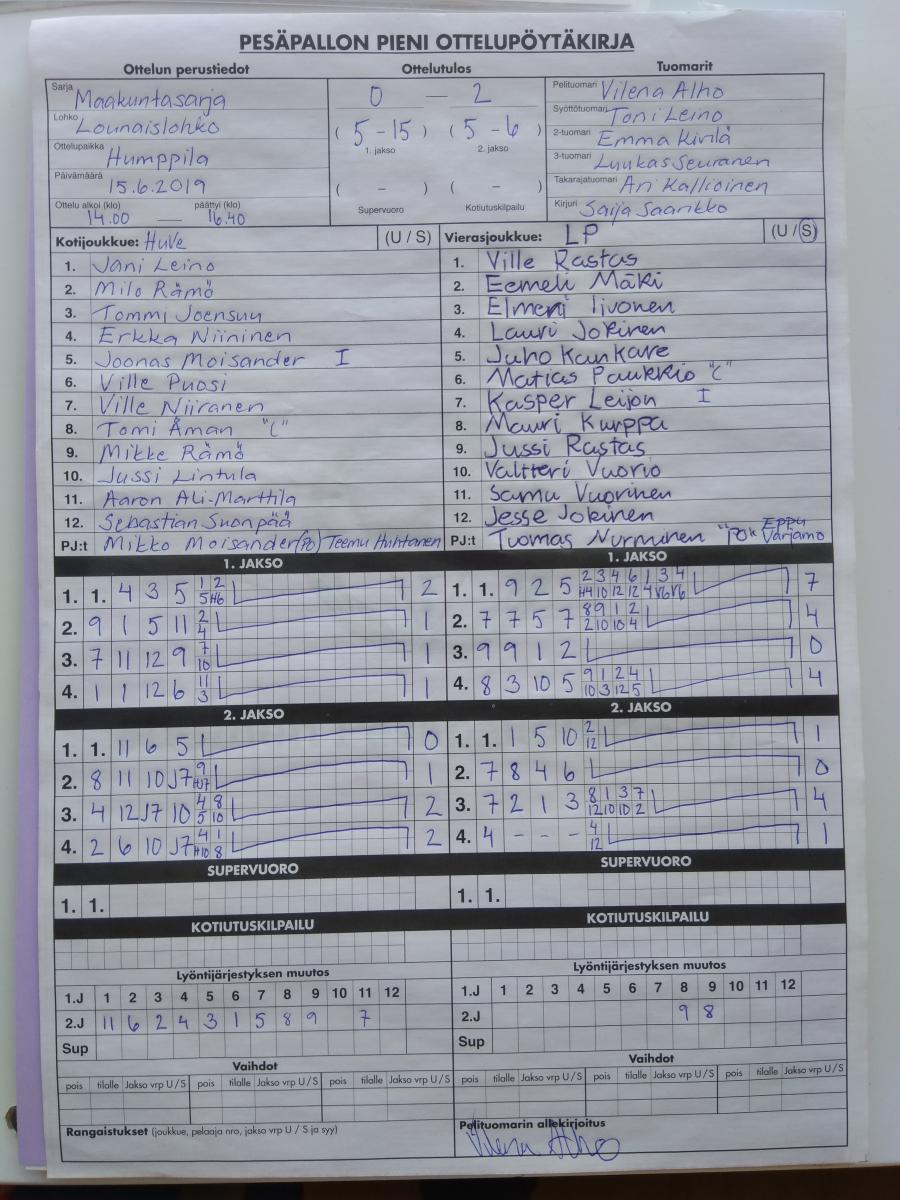 PESÄPALLON PIENI OTTELUPÖYTÄKIRJA
Ottelun perustiedot
Ottelutulos
Tuomarit
Sarja Maakuntasarja
Lohko Lounaislohko
Ottelupaikka Humppila
Päivämäärä 15.6.2019
Ottelu alkoi (klo) päättyi (klo)
14.00 — 16.40
0 — 2
( 5 - 15 ) ( 5 - 6 )
1. jakso 2. jakso
( - ) ( - )
Supervuoro Kotiutuskilpailu
Pelituomari Vilena Alho
Syöttötuomari Toni Leino
2-tuomari Emma Kivilä
3-tuomari Luukas Seuranen
Takarajatuomari Ari Kallioinen
Kirjuri Saija Saarikko
Kotijoukkue: HuVe (U / S)
1. Jani Leino
2. Milo Rämö
3. Tommi Joensuu
4. Erkka Niininen
5. Joonas Moisander I
6. Ville Puosi
7. Ville Niiranen
8. Tomi Åman "C"
9. Mikke Rämö
10. Jussi Lintula
11. Aaron Ali-Marttila
12. Sebastian Suonpää
PJ:t Mikko Moisander (PO) Teemu Huhtanen
Vierasjoukkue: LP (U / S)
1. Ville Rastas
2. Eemeli Mäki
3. Elmeri Iivonen
4. Lauri Jokinen
5. Juho Kankare
6. Matias Paukkio "C"
7. Kasper Leijon I
8. Mauri Kurppa
9. Jussi Rastas
10. Valtteri Vuorio
11. Samu Vuorinen
12. Jesse Jokinen
PJ:t Tuomas Nurminen "PO" Eppu Varjamo
1. JAKSO
1. 1. 4 3 5 1 2 2
5 H6
2. 9 1 5 11 2 1
4
3. 7 11 12 9 7 1
10
4. 1 1 12 6 11 1
3
2. JAKSO
1. 1. 11 6 5 0
2. 8 11 10 J7 9 1
HJ7
3. 4 12 J7 10 4 8 2
5 10
4. 2 6 10 J7 4 1 2
H10 8
SUPERVUORO
1. 1.
KOTIUTUSKILPAILU
Lyöntijärjestyksen muutos
1.J 1 2 3 4 5 6 7 8 9 10 11 12
2.J 11 6 2 4 3 1 5 8 9 7
Sup
Vaihdot
pois tilalle Jakso vrp U / S pois tilalle Jakso vrp U / S pois tilalle Jakso vrp U / S
Rangaistukset (joukkue, pelaaja nro, jakso vrp U / S ja syy)
1. JAKSO
1. 1. 9 2 5 2 3 4 6 1 3 4 7
H4 10 12 12 4 V6 V6
2. 7 7 5 7 8 9 1 2 4
2 10 10 4
3. 9 9 1 2 0
4. 8 3 10 5 9 1 2 4 4
10 3 12 5
2. JAKSO
1. 1. 1 5 10 2 1
12
2. 7 8 4 6 0
3. 7 2 1 3 8 1 3 7 4
12 10 10 2
4. 4 - - - 4 1
12
SUPERVUORO
1. 1.
KOTIUTUSKILPAILU
Lyöntijärjestyksen muutos
1.J 1 2 3 4 5 6 7 8 9 10 11 12
2.J 9 8
Sup
Vaihdot
pois tilalle Jakso vrp U / S pois tilalle Jakso vrp U / S pois tilalle Jakso vrp U / S
Pelituomarin allekirjoitus
Vilena Alho